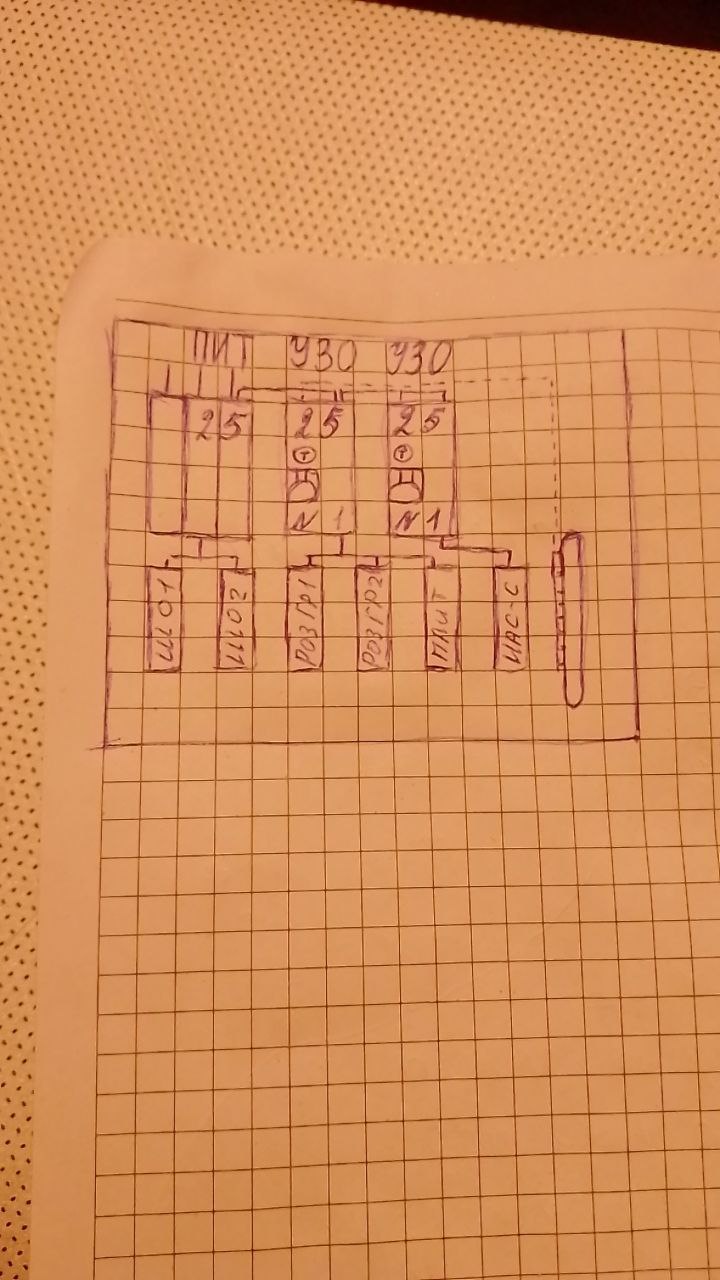 ПИТ УЗО УЗО
25 25 25
N 1 N 1
ШО1 ШО2 РОЗГР1 РОЗГР2 ПЛИТ НАС-С